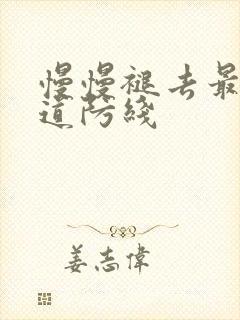 慢慢褪去最
道防綫
姜志偉